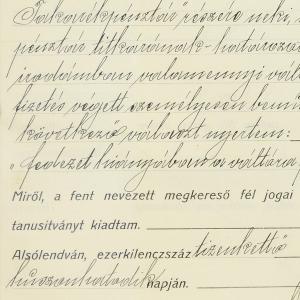 Takarékpénztár" részére neki,
pénztár titkárának - határozo
irodámban valamennyi vál
fizetés végett személyesen bemu
következő választ nyertem:
"fedezet hiányában a váltóra
Miről, a fent nevezett megkereső fél jogai
tanusitványt kiadtam.
Alsólendván, ezerkilencszáz tizenkettő
huszonhatodik napján.